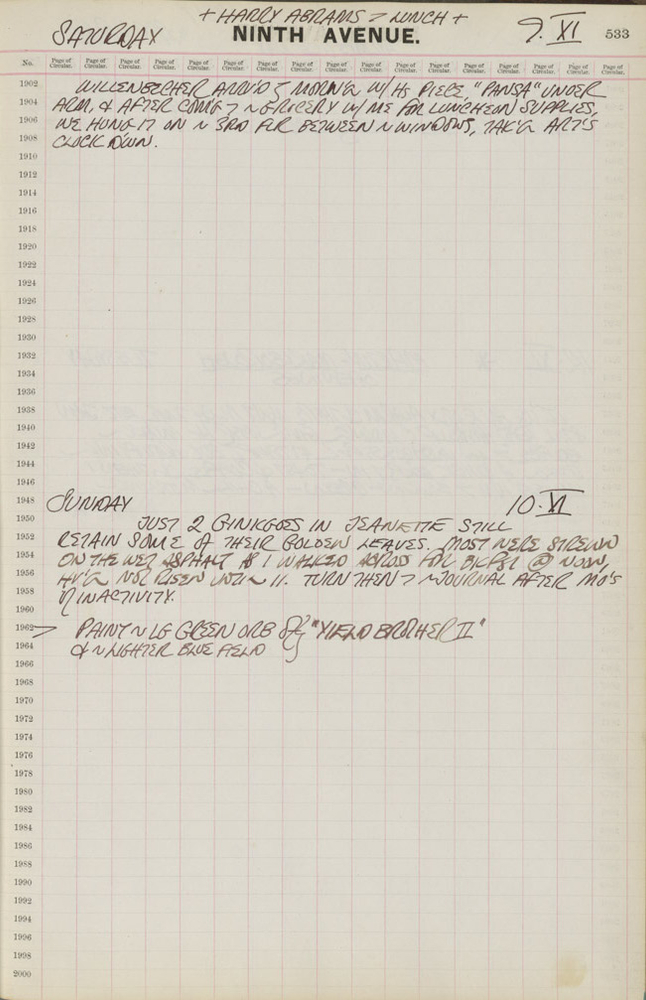 + HARRY ABRAMS > LUNCH +
SATURDAY NINTH AVENUE. 9. XI 533
No. Page of Circular. Page of Circular. Page of Circular. Page of Circular. Page of Circular. Page of Circular. Page of Circular. Page of Circular. Page of Circular. Page of Circular. Page of Circular. Page of Circular. Page of Circular. Page of Circular. Page of Circular. Page of Circular. Page of Circular.
1902 WILLENBECHER MORN'G W/ HS PIECE "PANSA" UNDER
1904 ARM, & AFTER COMG > ~ GROCERY W/ ME FOR LUNCHEON SUPPLIES,
1906 WE HUNG IT ON ~ 3RD FLR BETWEEN ~ WINDOWS, TAK'G ART'S
1908 CLOCK DOWN.
1910
1912
1914
1916
1918
1920
1922
1924
1926
1928
1930
1932
1934
1936
1938
1940
1942
1944
1946
1948 SUNDAY 10. XI
1950 JUST 2 GINKGOES IN JEANETTE STILL
1952 RETAIN SOME OF THEIR GOLDEN LEAVES. MOST WERE STREWN
1954 ON THE WET ASPHALT AS I WALKED ACROSS FOR BKFST @ NOON,
1956 HV'G NOT RISEN UNTIL 11. TURN THEN > ~ JOURNAL AFTER MO'S
1958 OF INACTIVITY.
1960
1962 > PAINT ~ LG GREEN ORB OF "YIELD BROTHER II"
1964 & ~ LIGHTER BLUE FIELD
1966
1968
1970
1972
1974
1976
1978
1980
1982
1984
1986
1988
1990
1992
1994
1996
1998
2000